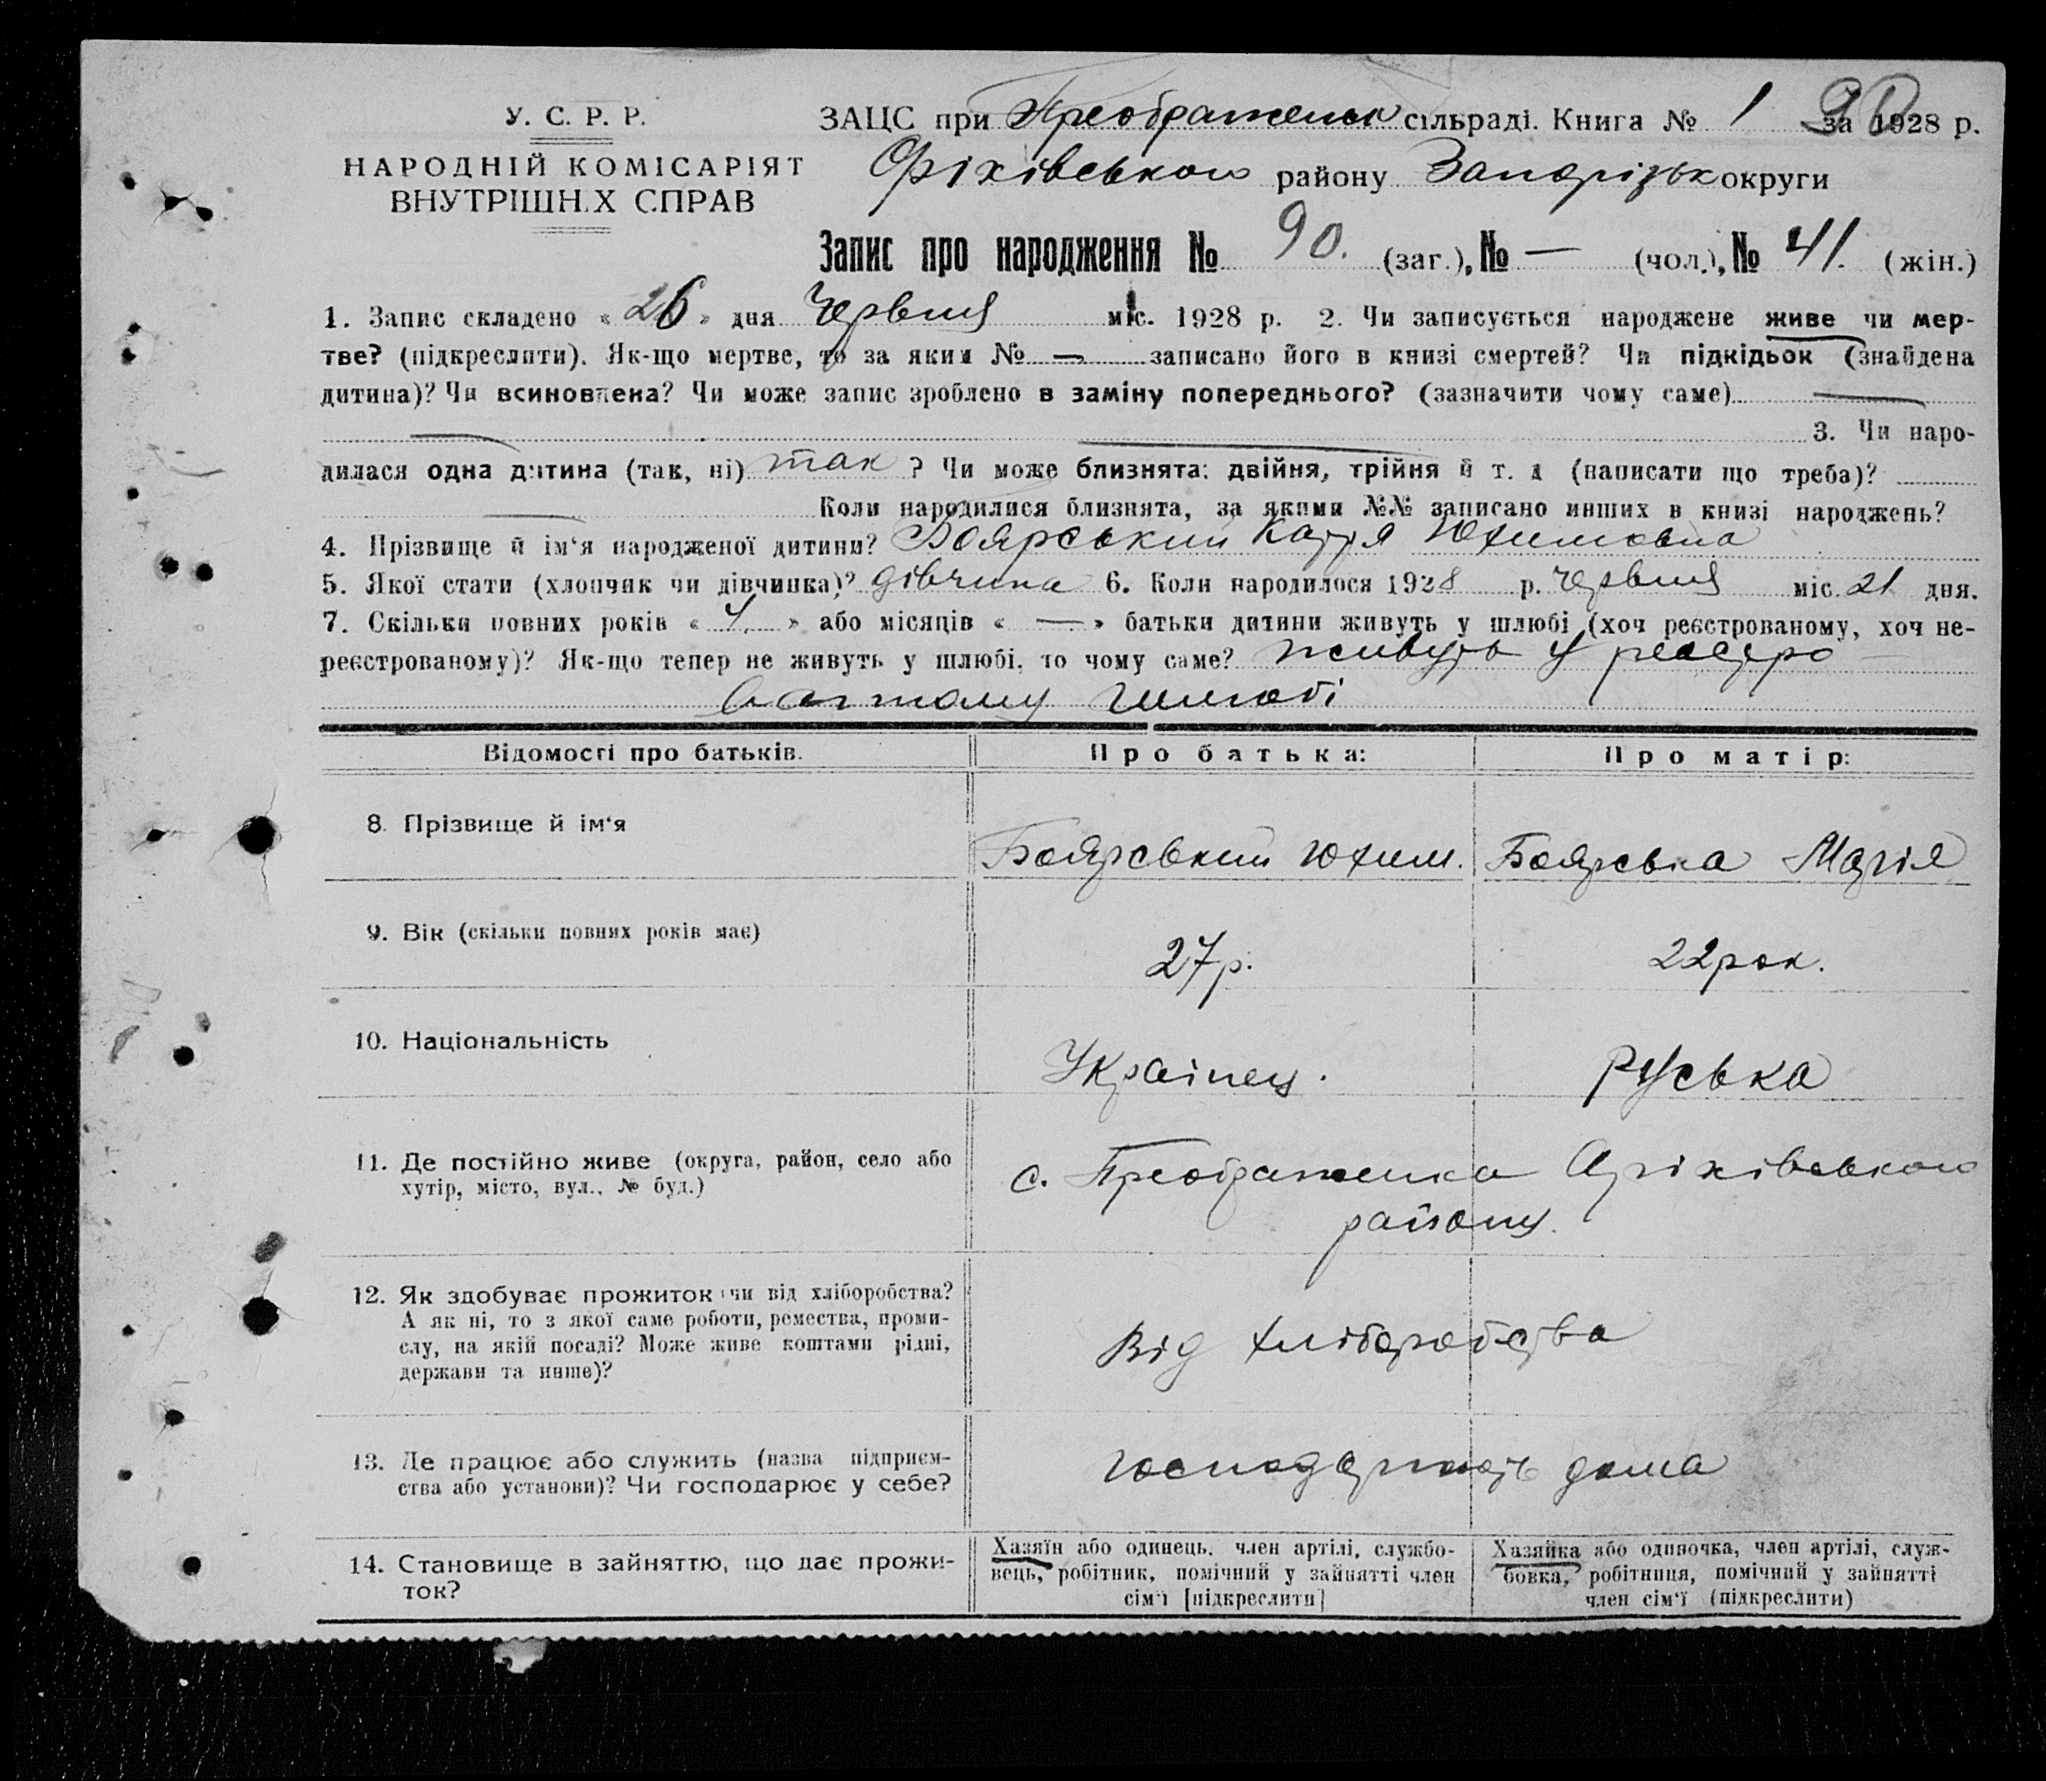 У. С. Р. Р.
НАРОДНІЙ КОМІСАРІЯТ
ВНУТРІШН.Х СПРАВ
ЗАЦС при Преображенськ сільраді. Книга № 1 за 1928 р.
Оріхівського району Запорізьк округи
Запис про народження № 90. (заг.), № — (чол.), № 41. (жін.)
1. Запис складено « 26 » дня Червня міс. 1928 р. 2. Чи записується народжене живе чи мер-
тве? (підкреслити). Як-що мертве, то за яким № — записано його в книзі смертей? Чи підкідьок (знайдена
дитина)? Чи всиновлена? Чи може запис зроблено в заміну попереднього? (зазначити чому саме) —
— 3. Чи наро-
дилася одна дитина (так, ні) так ? Чи може близнята: двійня, трійня й т. д (написати що треба)?
— Коли народилися близнята, за якими №№ записано инших в книзі народжень?
4. Прізвище й ім‘я народженої дитини? Боярський Катря Юхимовна
5. Якої стати (хлопчик чи дівчинка)? дівчина 6. Коли народилося 1928 р. червня міс. 21 дня.
7. Скільки повних років « 4. » або місяців « — » батьки дитини живуть у шлюбі (хоч реєстрованому, хоч не-
реєстрованому)? Як-що тепер не живуть у шлюбі, то чому саме? живуть у реєстро
ваному шлюбі
Відомості про батьків. Про батька: Про матір:
8. Прізвище й ім‘я Боярський Юхим. Боярська Марія
9. Вік (скільки повних років має) 27р. 22рок.
10. Національність Українец. Руська
11. Де постійно живе (округа, район, село або
хутір, місто, вул., № буд.)
с. Преображенка Оріхівського
району.
12. Як здобуває прожиток чи від хліборобства?
А як ні, то з якої саме роботи, ремества, проми-
слу, на якій посаді? Може живе коштами рідні,
держави та инше)?
Від хліборобства
13. Де працює або служить (назва підприєм-
ства або установи)? Чи господарює у себе?
господарюють дома
14. Становище в зайняттю, що дає прожи-
ток?
Хазяїн або одинець, член артілі, службо-
вець, робітник, помічний у зайнятті член
сім‘ї [підкреслити]
Хазяйка або одиночка, член артілі, служ-
бовка, робітниця, помічний у зайнятті
член сім‘ї (підкреслити)